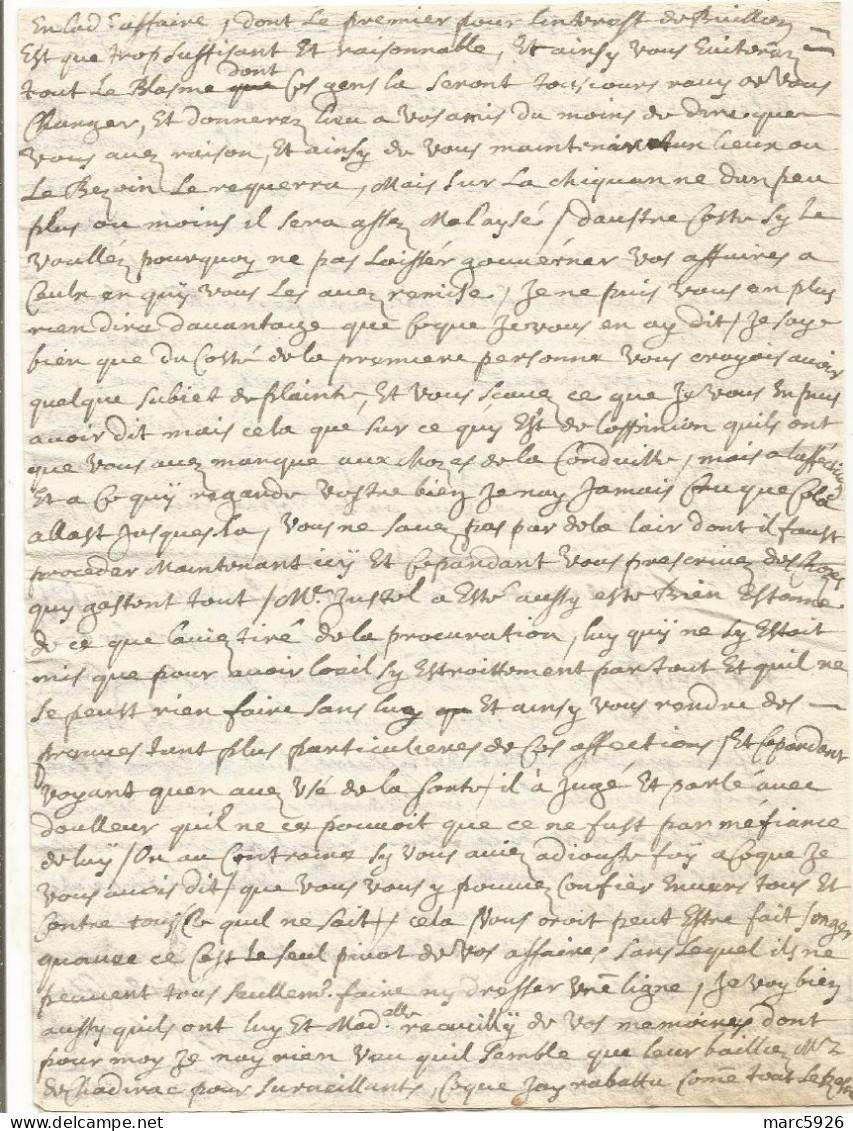 En lad.e affaire, dont Le premier pour linterest de Buillon
Est que trop suffisant Et raisonnable, Et ainsy vous Euiterez
tout Le Blasme que dont Ces gens la seront tousiours rauy de vous
Charger, Et donnerez lieu a vos amis du moins de dire que
vous auez raison, Et ainsy de vous maintenir lieux ou
Le Bezoin Le requerra, Mais sur La chiquanne dun peu
plus ou moins il sera assez Malaysé / daustre Coste sy Le
voullez pourquoy ne pas Laissér gouuérner vos affaires a
Ceulx en quy vous Les auez remise, Je ne puis vous en plus
rien dire dauantaige que Ceque Je vous en ay dit / Je scay
bien que du Costé de la premiere personne vous croyois auoir
quelque subiet de plainte, Et vous scauez ce que Je vous En puis
auoir dit mais cela que sur ce quy Est de Loppinion quils ont
que vous auez manque aux chozes de la Conduitte, mais a laffection
Et a Ce quy regarde vostre bien Je nay Jamais Creu que Cela
allast Jusques la, vous ne sauez pas par dela lair dont il faust
proceder Maintenant icy Et Cependant vous prescriuez des chozes
quy gastent tout / Mr. Justel a Esté aussy este Bien Estonne
de ce que lauiez tiré de la procuration, luy quy ne sy Estoit
mis que pour auoir loeil sy Estroittement par tout Et quil ne
se peust rien faire sans luy que Et ainsy vous rendre des
preuues tant plus particulieres de Ces affections / Et Cependant
voyant quen auez Usé de la sorte / il à Jugé Et parlé auec
doulleur quil ne ce pouuoit que ce ne fust par méfiance
de luy / Ou au Contraire sy vous auiez adiouste foy a Ceque Je
vous auois dit / que vous vous y pouuez Confier Enuers tous Et
Contre tous / Ce quil ne sait / cela vous oroit peut Estre fait songer
que ce Cest Le seul piuot de vos affaires sans Lequel ils ne
peuuent tous seullemt. faire ny dresser vne ligne, Je voy bien
aussy quils ont luy Et Mad.alle recuillÿ de vos memoires dont
pour moy Je nay rien veu quil semble que leur baillez Mr.
de Chadirac pour surueillant, Ceque Jay rabattu Come tout Le reste